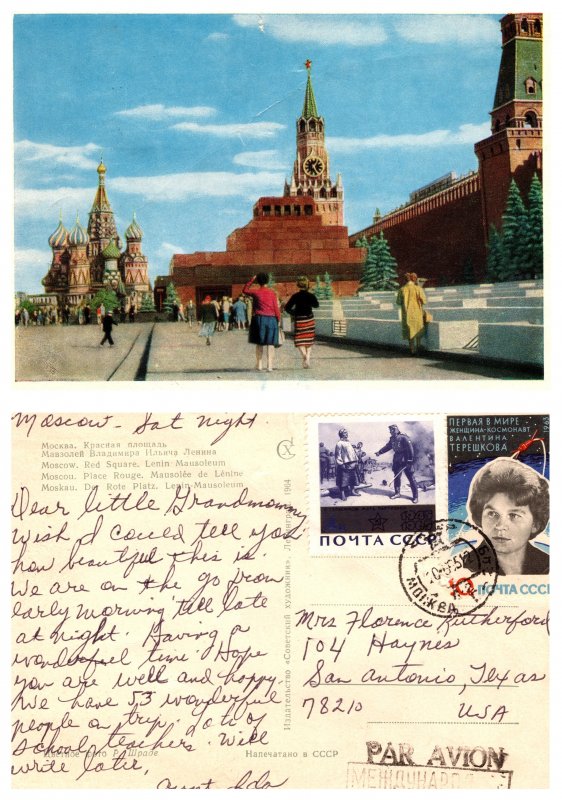 Moscow - Sat night.
Москва. Красная площадь
Мавзолей Владимира Ильича Ленина
Moscow. Red Square. Lenin Mausoleum
Moscou. Place Rouge. Mausolée de Lénine
Moskau. Der Rote Platz. Lenin-Mausoleum
Dear little Grandmommy
Wish I could tell you
how beautiful this is
We are on the go from
early morning 'till late
at night. Having a
wonderful time. Hope
you are well and happy.
We have 53 wonderful
people on trip. Lots of
school teachers. Will
write later,
Цветное фото Р. Шраде
Aunt Ada
Издательство «Советский художник». 1964
Напечатано в СССР
ПОЧТА СССР
ПЕРВАЯ В МИРЕ
ЖЕНЩИНА-КОСМОНАВТ
ВАЛЕНТИНА
ТЕРЕШКОВА
ПОЧТА СССР
МОСКВА
Mrs Florence Rutherford
104 Haynes
San Antonio, Texas
78210
USA
PAR AVION